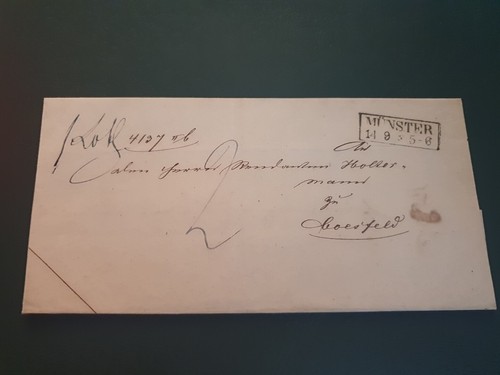 MÜNSTER
14 9 * 5-6
4137 rb
An
den Herrn Rendanten Holles-
mann
zu
Coesfeld
2